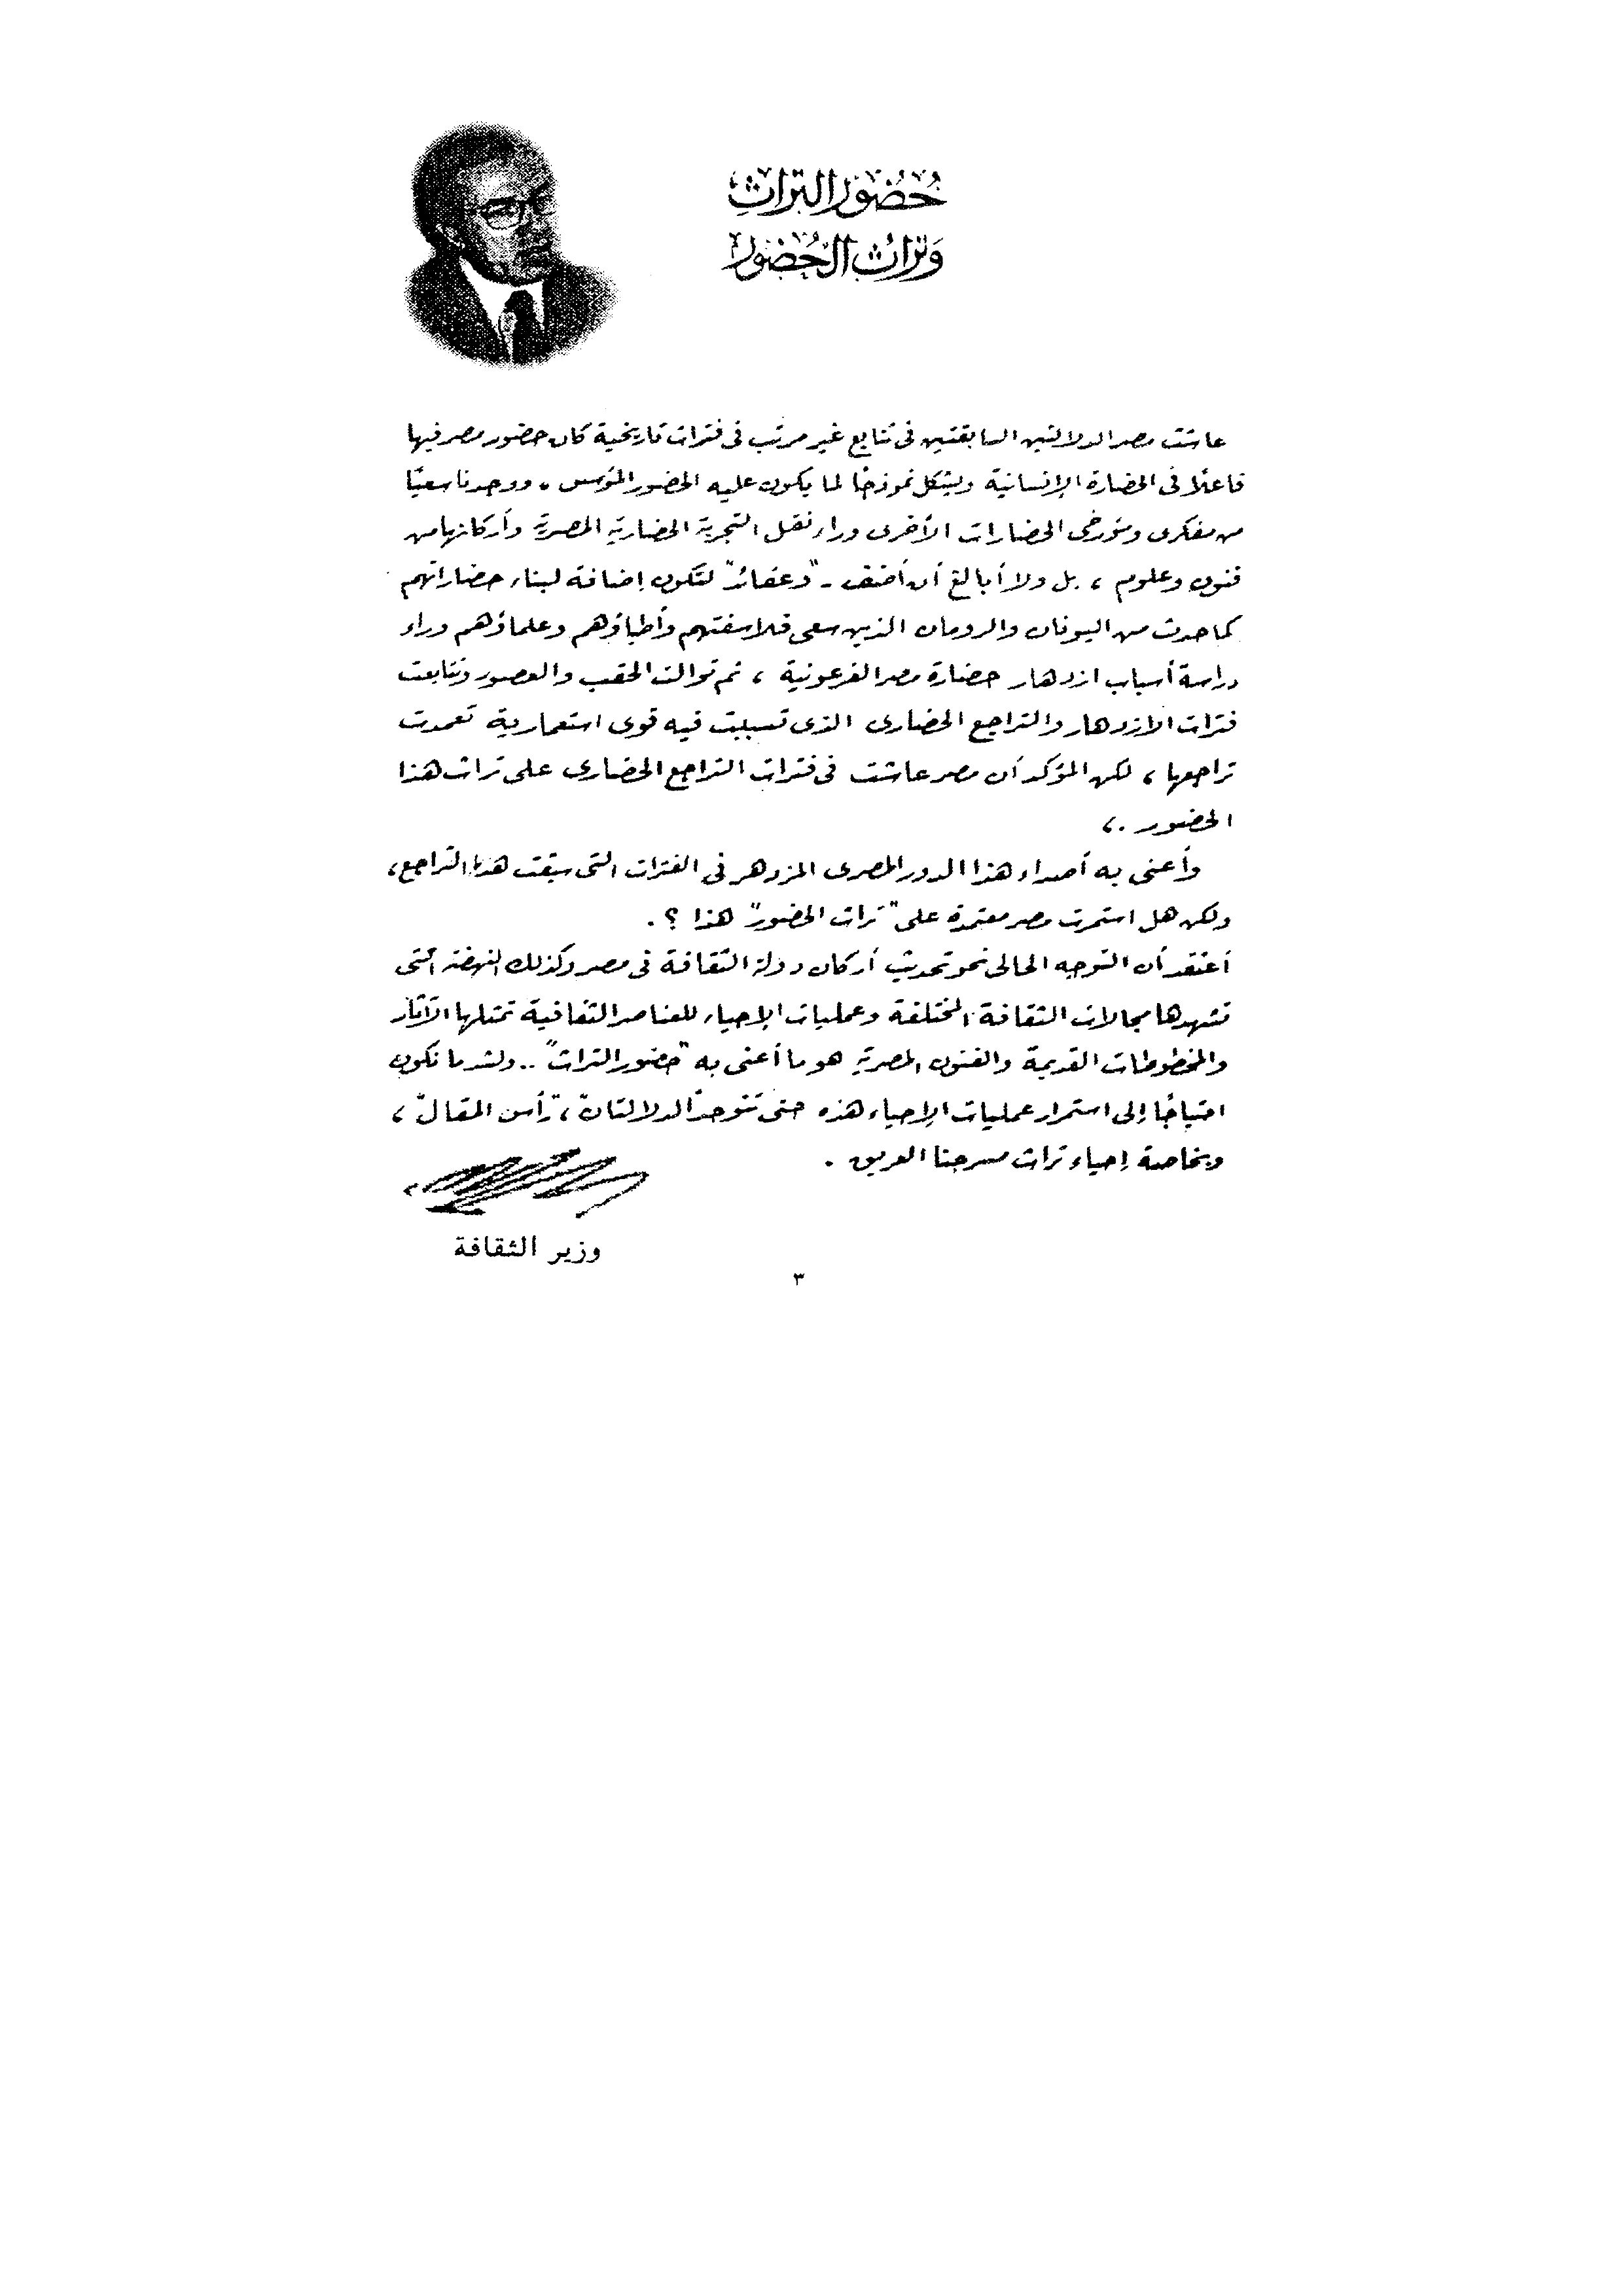 حُضُورُ التراثِ
وَتراثُ الحُضُورِ
عاشت مصر الدلالتين السابقتين فى تتابع غير مرتب فى فترات تاريخية كان حضور مصر فيها
فاعلاً فى الحضارة الإنسانية ويشكل نموذجًا لما يكون عليه الحضور المؤسس . ووجدنا سعيًا
من مفكرى ومؤرخى الحضارات الأخرى وراء نقل التجربة الحضارية المصرية وأركانها من
فنون وعلوم ، بل ولا أبالغ أن أضف - "وعقائد" لتكون إضافة لبناء حضاراتهم
كما حدث من اليونان والرومان الذين سعى فلاسفتهم وأطباؤهم وعلماؤهم وراء
دراسة أسباب ازدهار حضارة مصر الفرعونية ، ثم توالت الحقب والعصور وتتابعت
فترات الازدهار والتراجع الحضارى الذى تسببت فيه قوى استعمارية تعمدت
تراجعها ، لكن المؤكد أن مصر عاشت فى فترات التراجع الحضارى على تراث هذا
الحضور .،
وأعنى به أصداء هذا الدور المصرى المزدهر فى الفترات التى سبقت هذا التراجع ،
ولكن هل استمرت مصر معتمدة على "تراث الحضور" هذا ؟ .
أعتقد أن التوجه الحالى نحو تحديث أركان دولة الثقافة فى مصر وكذلك النهضة التى
تشهدها مجالات الثقافة المختلفة وعمليات الإحياء للعناصر الثقافية تمثلها الآثار
والمخطوطات القديمة والفنون المصرية هو ما أعنى به "حضور التراث" .. ولشد ما نكون
احتياجًا إلى استمرار عمليات الإحياء هذه حتى تتوحد "الدلالتان" ، "رأس المقال" ،
وبخاصة إحياء تراث مسرحنا العريق .
وزير الثقافة
٣